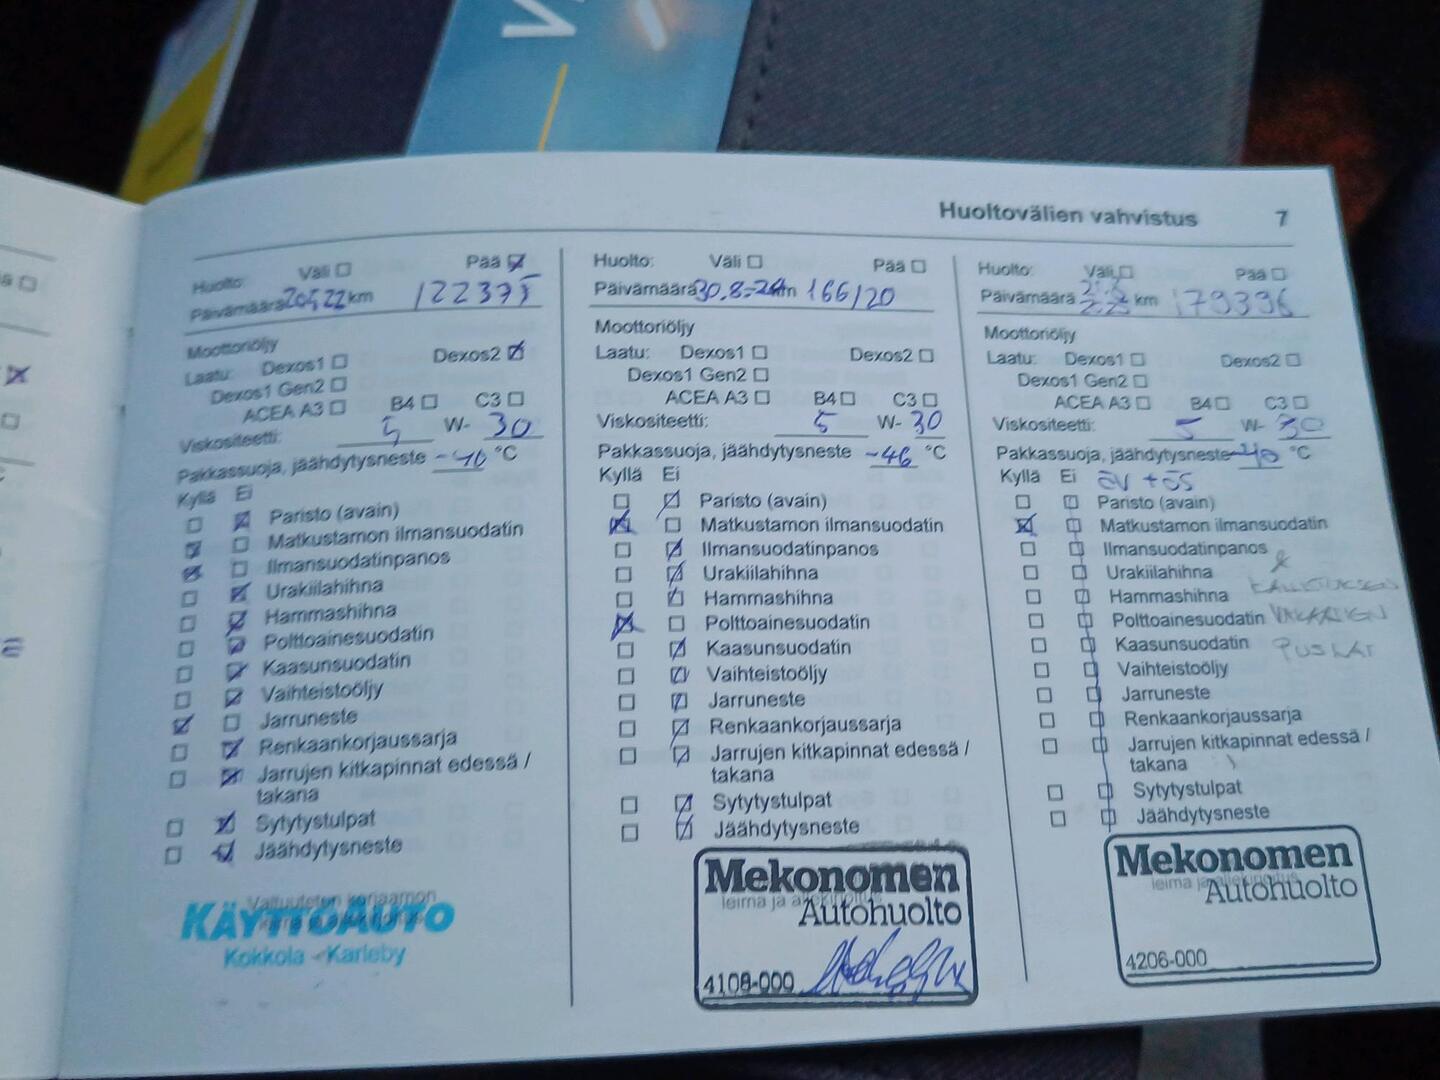 Huoltovälien vahvistus 7
Huolto: Väli Pää
Päivämäärä 20.5.22 km 122375
Moottoriöljy
Laatu: Dexos1 Dexos2
Dexos1 Gen2
ACEA A3 B4 C3
Viskositeetti: 5 W- 30
Pakkassuoja, jäähdytysneste -40 °C
Kyllä Ei
Paristo (avain)
Matkustamon ilmansuodatin
Ilmansuodatinpanos
Urakiilahihna
Hammashihna
Polttoainesuodatin
Kaasunsuodatin
Vaihteistoöljy
Jarruneste
Renkaankorjaussarja
Jarrujen kitkapinnat edessä /
takana
Sytytystulpat
Jäähdytysneste
Valtuutetun korjaamon
KÄYTTÖAUTO
Kokkola - Karleby
Huolto: Väli Pää
Päivämäärä 30.8.-24 km 166120
Moottoriöljy
Laatu: Dexos1 Dexos2
Dexos1 Gen2
ACEA A3 B4 C3
Viskositeetti: 5 W- 30
Pakkassuoja, jäähdytysneste -46 °C
Kyllä Ei
Paristo (avain)
Matkustamon ilmansuodatin
Ilmansuodatinpanos
Urakiilahihna
Hammashihna
Polttoainesuodatin
Kaasunsuodatin
Vaihteistoöljy
Jarruneste
Renkaankorjaussarja
Jarrujen kitkapinnat edessä /
takana
Sytytystulpat
Jäähdytysneste
Mekonomen
leima ja allekirjoitus
Autohuolto
4108-000
Huolto: Väli Pää
Päivämäärä km 179396
Moottoriöljy
Laatu: Dexos1 Dexos2
Dexos1 Gen2
ACEA A3 B4 C3
Viskositeetti: 5 W- 30
Pakkassuoja, jäähdytysneste -40 °C
Kyllä Ei ÖV + ÖS
Paristo (avain)
Matkustamon ilmansuodatin
Ilmansuodatinpanos &
Urakiilahihna KALLISTUKSEN
Hammashihna
Polttoainesuodatin VAKAAJIEN
Kaasunsuodatin PUSLAT
Vaihteistoöljy
Jarruneste
Renkaankorjaussarja
Jarrujen kitkapinnat edessä /
takana
Sytytystulpat
Jäähdytysneste
Mekonomen
leima ja allekirjoitus
Autohuolto
4206-000